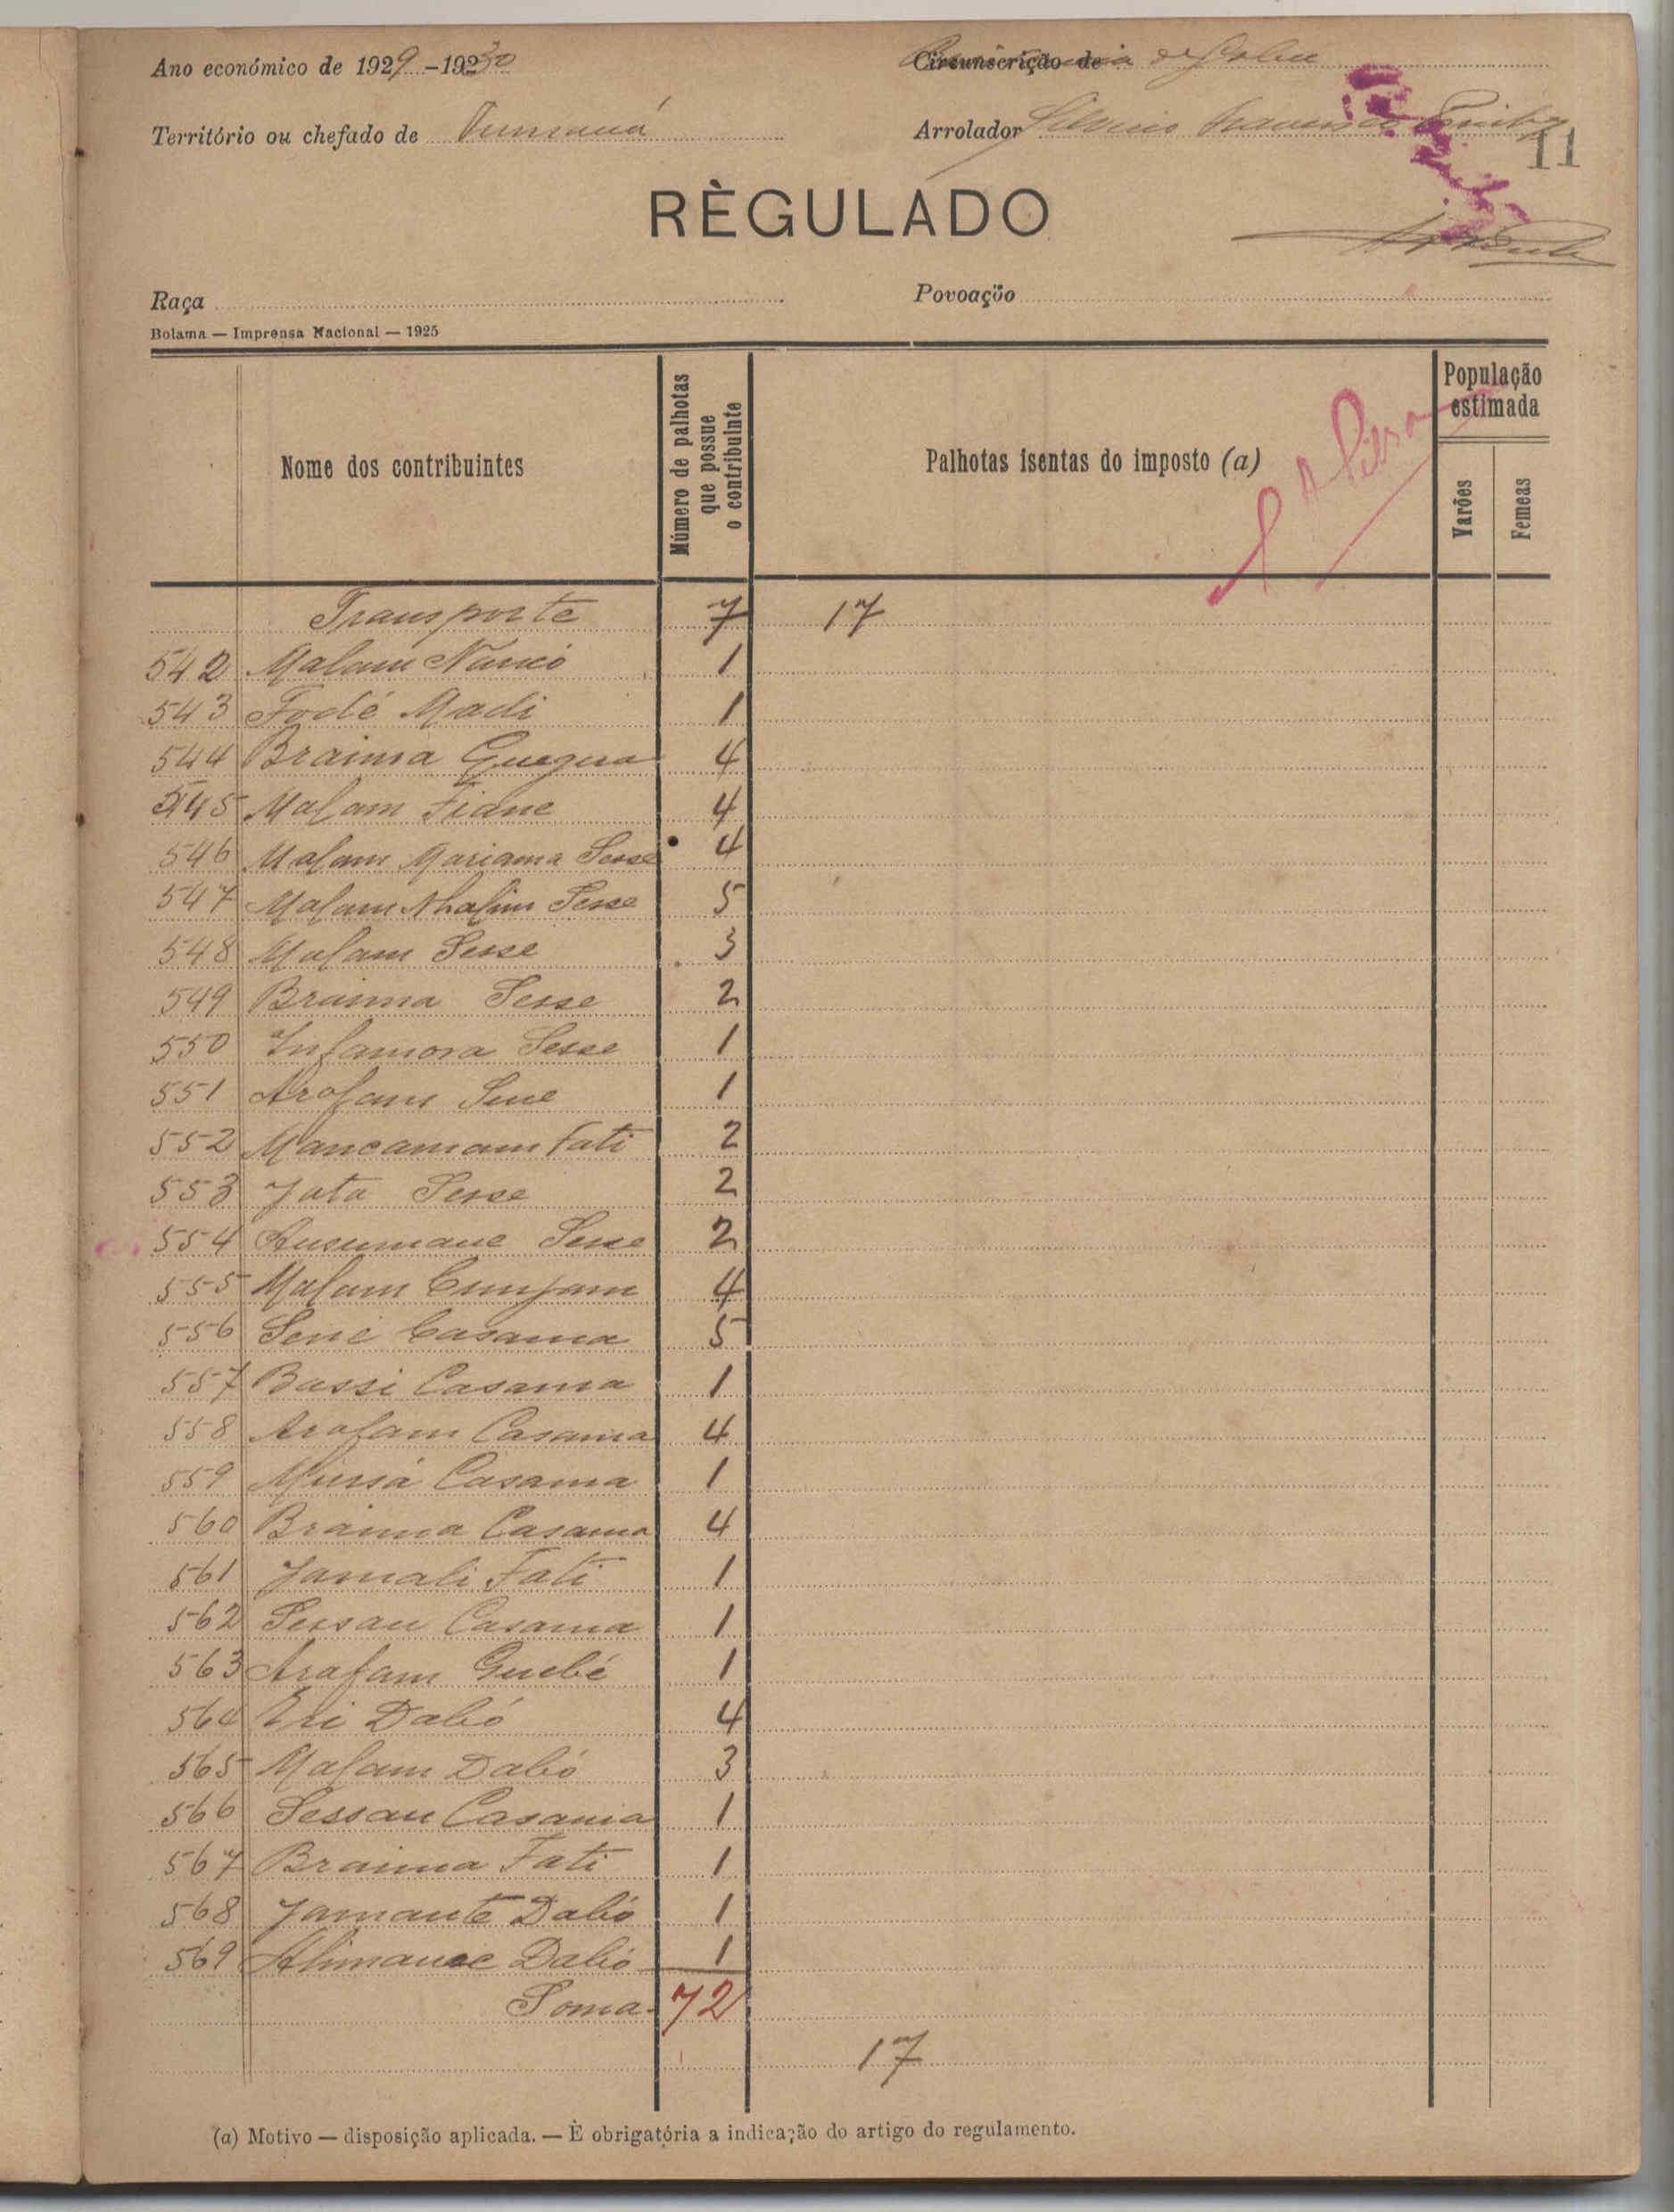 Ano económico de 1929-1930
Circunscrição de
Território ou chefado de
Arrolador
11
RÈGULADO
Raça
Povoação
Bolama — Imprensa Nacional — 1925
Nome dos contribuintes
Múmero de palhotas que possue o contribuinte
Palhotas isentas do imposto (a)
População estimada
Varões
Femeas
Transporte 7 17
542 Malam 1
543 Fodé Madi 1
544 Braima 4
545 Malam Fiane 4
546 Malam Mariama Sesse 4
547 Malam Sesse 5
548 Malam Sesse 3
549 Braima Sesse 2
550 Infamora Sesse 1
551 Arafam 1
552 Mancamam Fati 2
553 Jata Sesse 2
554 Ausumane Sesse 2
555 Malam 4
556 Casama 5
557 Bassi Casama 1
558 Arafam Casama 4
559 Mussá Casama 1
560 Braima Casama 4
561 Jamali Fati 1
562 Sessau Casama 1
563 Arafam Guebé 1
564 Dabó 4
565 Malam Dabó 3
566 Sessau Casama 1
567 Braima Fati 1
568 Jamante Dabó 1
569 Dabó 1
Soma 72
17
(a) Motivo — disposição aplicada. — È obrigatória a indicação do artigo do regulamento.